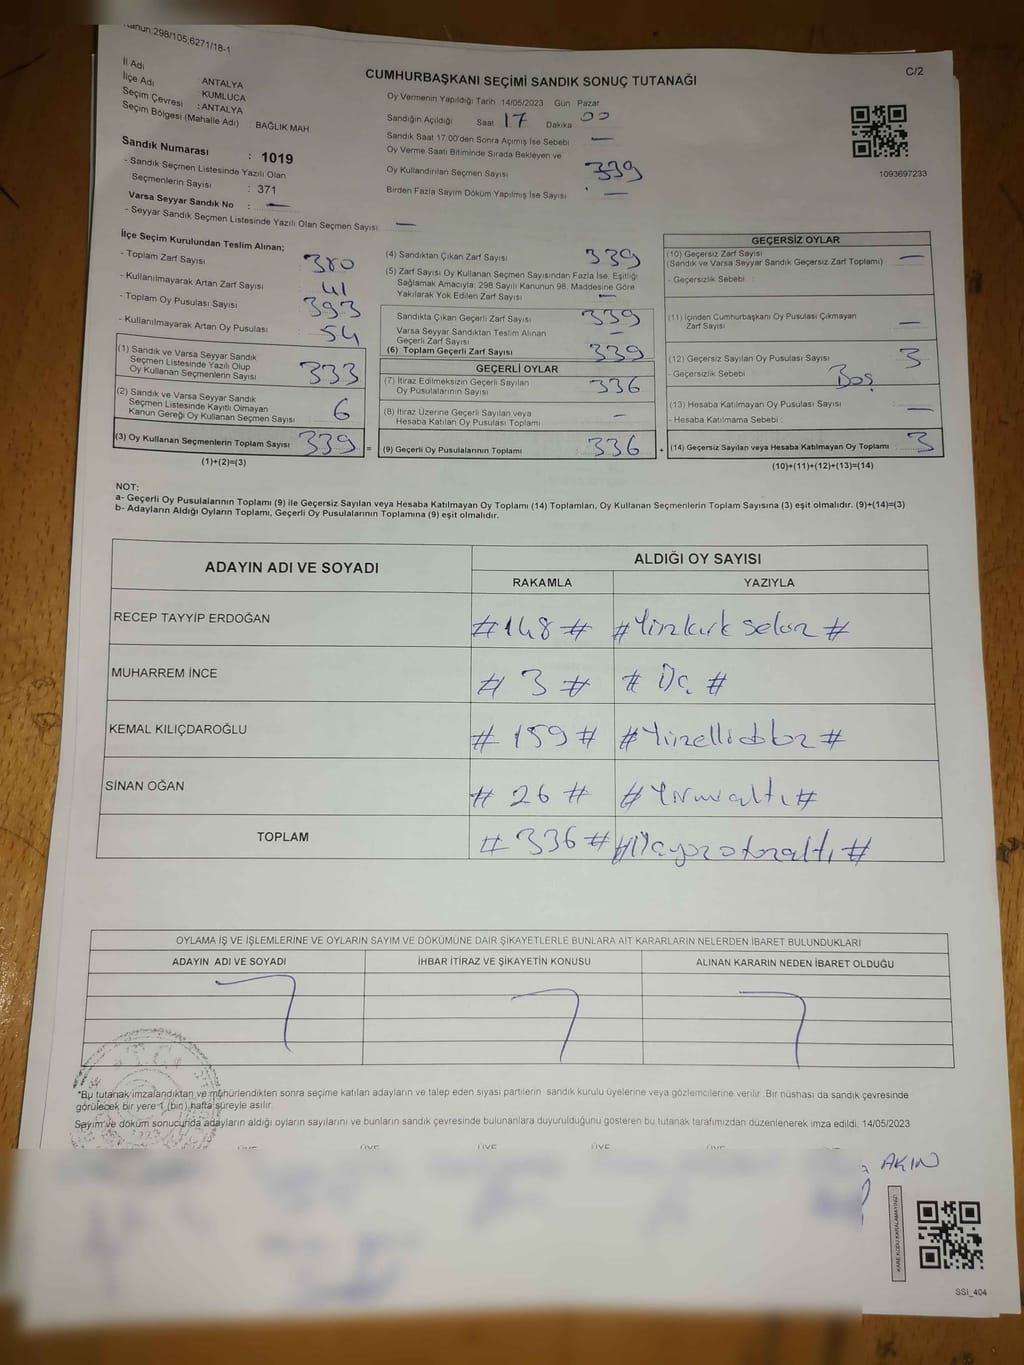 Kanun:298/105;6271/18-1
CUMHURBAŞKANI SEÇİMİ SANDIK SONUÇ TUTANAĞI
C/2
İl Adı ANTALYA
İlçe Adı KUMLUCA
Seçim Çevresi : ANTALYA
Seçim Bölgesi (Mahalle Adı) BAĞLIK MAH
Sandık Numarası : 1019
- Sandık Seçmen Listesinde Yazılı Olan
Seçmenlerin Sayısı : 371
Varsa Seyyar Sandık No : —
- Seyyar Sandık Seçmen Listesinde Yazılı Olan Seçmen Sayısı —
Oy Vermenin Yapıldığı Tarih 14/05/2023 Gün Pazar
Sandığın Açıldığı Saat 17 Dakika 00
Sandık Saat 17:00'den Sonra Açımış İse Sebebi —
Oy Verme Saati Bitiminde Sırada Bekleyen ve
Oy Kullandırılan Seçmen Sayısı 339
Birden Fazla Sayım Döküm Yapılmış İse Sayısı —
1093697233
İlçe Seçim Kurulundan Teslim Alınan;
- Toplam Zarf Sayısı 380
- Kullanılmayarak Artan Zarf Sayısı 41
- Toplam Oy Pusulası Sayısı 393
- Kullanılmayarak Artan Oy Pusulası 54
(1) Sandık ve Varsa Seyyar Sandık
Seçmen Listesinde Yazılı Olup
Oy Kullanan Seçmenlerin Sayısı 333
(2) Sandık ve Varsa Seyyar Sandık
Seçmen Listesinde Kayıtlı Olmayan
Kanun Gereği Oy Kullanan Seçmen Sayısı 6
(3) Oy Kullanan Seçmenlerin Toplam Sayısı 339 =
(1)+(2)=(3)
(4) Sandıktan Çıkan Zarf Sayısı 339
(5) Zarf Sayısı Oy Kullanan Seçmen Sayısından Fazla İse, Eşitliği
Sağlamak Amacıyla; 298 Sayılı Kanunun 98. Maddesine Göre
Yakılarak Yok Edilen Zarf Sayısı —
Sandıkta Çıkan Geçerli Zarf Sayısı 339
Varsa Seyyar Sandıktan Teslim Alınan
Geçerli Zarf Sayısı —
(6) Toplam Geçerli Zarf Sayısı 339
GEÇERLİ OYLAR
(7) İtiraz Edilmeksizin Geçerli Sayılan
Oy Pusulalarının Sayısı 336
(8) İtiraz Üzerine Geçerli Sayılan veya
Hesaba Katılan Oy Pusulası Toplamı —
(9) Geçerli Oy Pusulalarının Toplamı 336 +
GEÇERSİZ OYLAR
(10) Geçersiz Zarf Sayısı
(Sandık ve Varsa Seyyar Sandık Geçersiz Zarf Toplamı) —
- Geçersizlik Sebebi :
(11) İçinden Cumhurbaşkanı Oy Pusulası Çıkmayan
Zarf Sayısı —
(12) Geçersiz Sayılan Oy Pusulası Sayısı 3
- Geçersizlik Sebebi Boş
(13) Hesaba Katılmayan Oy Pusulası Sayısı —
- Hesaba Katılmama Sebebi :
(14) Geçersiz Sayılan veya Hesaba Katılmayan Oy Toplamı 3
(10)+(11)+(12)+(13)=(14)
NOT:
a- Geçerli Oy Pusulalarının Toplamı (9) ile Geçersiz Sayılan veya Hesaba Katılmayan Oy Toplamı (14) Toplamları, Oy Kullanan Seçmenlerin Toplam Sayısına (3) eşit olmalıdır. (9)+(14)=(3)
b- Adayların Aldığı Oyların Toplamı, Geçerli Oy Pusulalarının Toplamına (9) eşit olmalıdır.
ADAYIN ADI VE SOYADI ALDIĞI OY SAYISI
RAKAMLA YAZIYLA
RECEP TAYYİP ERDOĞAN #148# #Yüzkırk sekiz#
MUHARREM İNCE #3# #Üç#
KEMAL KILIÇDAROĞLU #159# #Yüzellidokuz#
SİNAN OĞAN #26# #Yirmialtı#
TOPLAM #336# #Üçyüzotuzaltı#
OYLAMA İŞ VE İŞLEMLERİNE VE OYLARIN SAYIM VE DÖKÜMÜNE DAİR ŞİKAYETLERLE BUNLARA AİT KARARLARIN NELERDEN İBARET BULUNDUKLARI
ADAYIN ADI VE SOYADI İHBAR İTİRAZ VE ŞİKAYETİN KONUSU ALINAN KARARIN NEDEN İBARET OLDUĞU
"Bu tutanak imzalandıktan ve mühürlendikten sonra seçime katılan adayların ve talep eden siyasi partilerin sandık kurulu üyelerine veya gözlemcilerine verilir. Bir nüshası da sandık çevresinde
görülecek bir yere 1 (bir) hafta süreyle asılır.
Sayım ve döküm sonucunda adayların aldığı oyların sayılarını ve bunların sandık çevresinde bulunanlara duyurulduğunu gösteren bu tutanak tarafımızdan düzenlenerek imza edildi. 14/05/2023
ÜYE ÜYE ÜYE ÜYE ÜYE
AKIN
KARE KODU KARALAMAYINIZ!
SSI_404